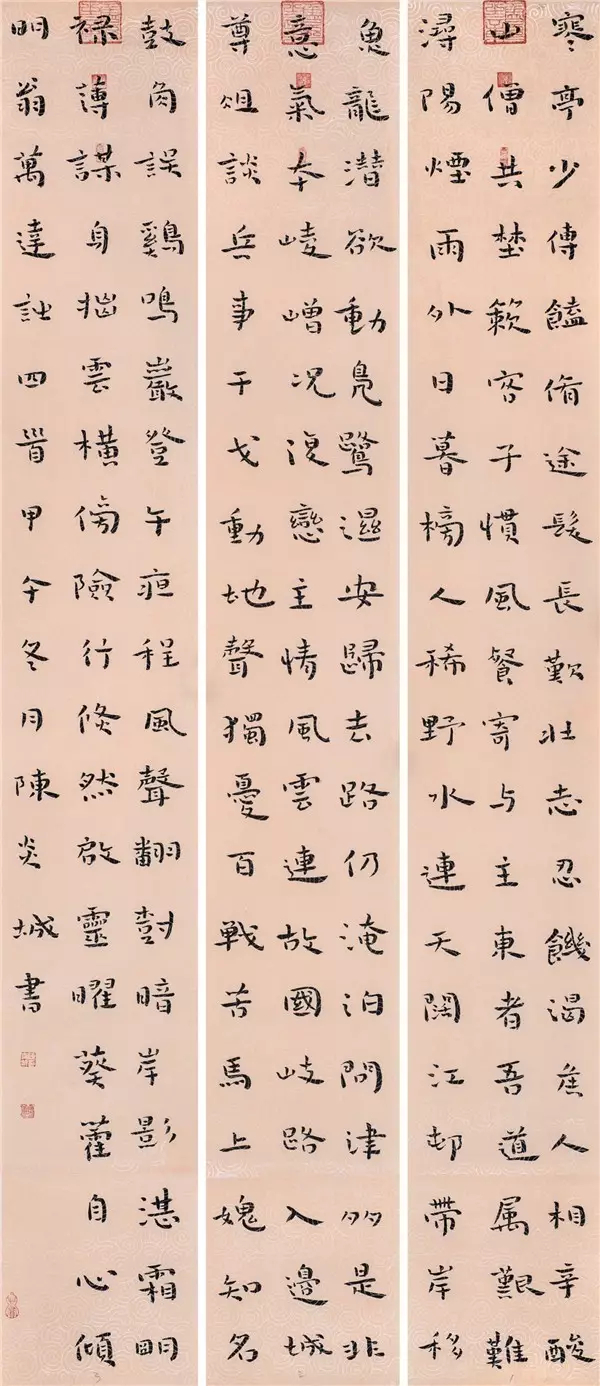 寒亭少傳饁脩途髮長歎壯志忍饑渴人相辛酸
山僧共埜簌客子慣風餐寄与主東者吾道属艱難
潯陽煙雨外日暮榜人稀野水連天闊江邨帶岸移
魚龍潛欲動鳧鷺濕安歸去路仍淹泊問津多是非
意氣本崚嶒況復戀主情風雲連故國岐路入邊城
尊俎談兵事干戈動地聲獨憂百戰苦馬上媿知名
鼓角誤鷄鳴巖登午夜程風聲翻樹暗岸影湛霜明
禄薄謀身拙雲橫傍險行倏然啟靈曜葵藿自心傾
明翁萬達詩四首甲午冬月陳炎城書